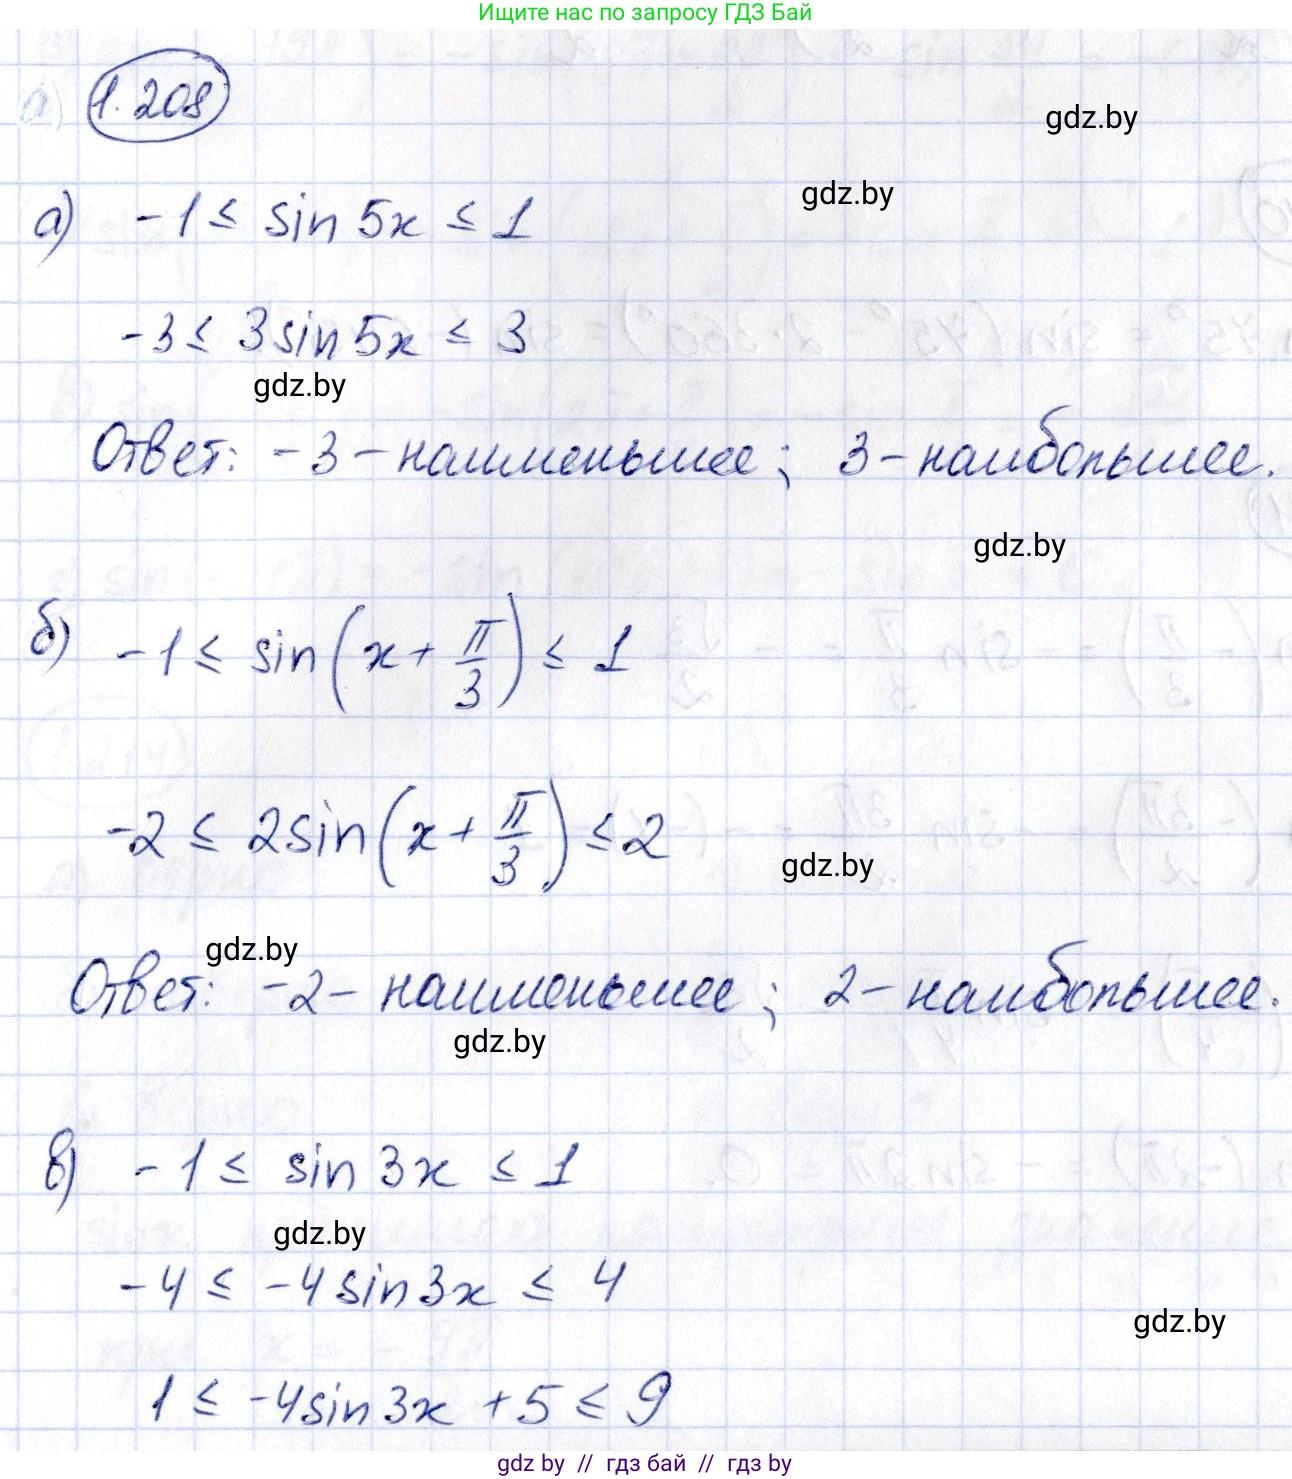 Ищите нас по запросу ГДЗ Бай
1.208
gdz.by
gdz.by
а) -1 ≤ sin 5x ≤ 1
-3 ≤ 3 sin 5x ≤ 3
gdz.by
Ответ: -3 - наименьшее; 3 - наибольшее.
gdz.by
б) -1 ≤ sin(x + π/3) ≤ 1
-2 ≤ 2 sin(x + π/3) ≤ 2
gdz.by
gdz.by
Ответ: -2 - наименьшее; 2 - наибольшее.
gdz.by
в) -1 ≤ sin 3x ≤ 1
gdz.by
-4 ≤ -4 sin 3x ≤ 4
gdz.by
1 ≤ -4 sin 3x + 5 ≤ 9
gdz by // гдз бай // гдз by